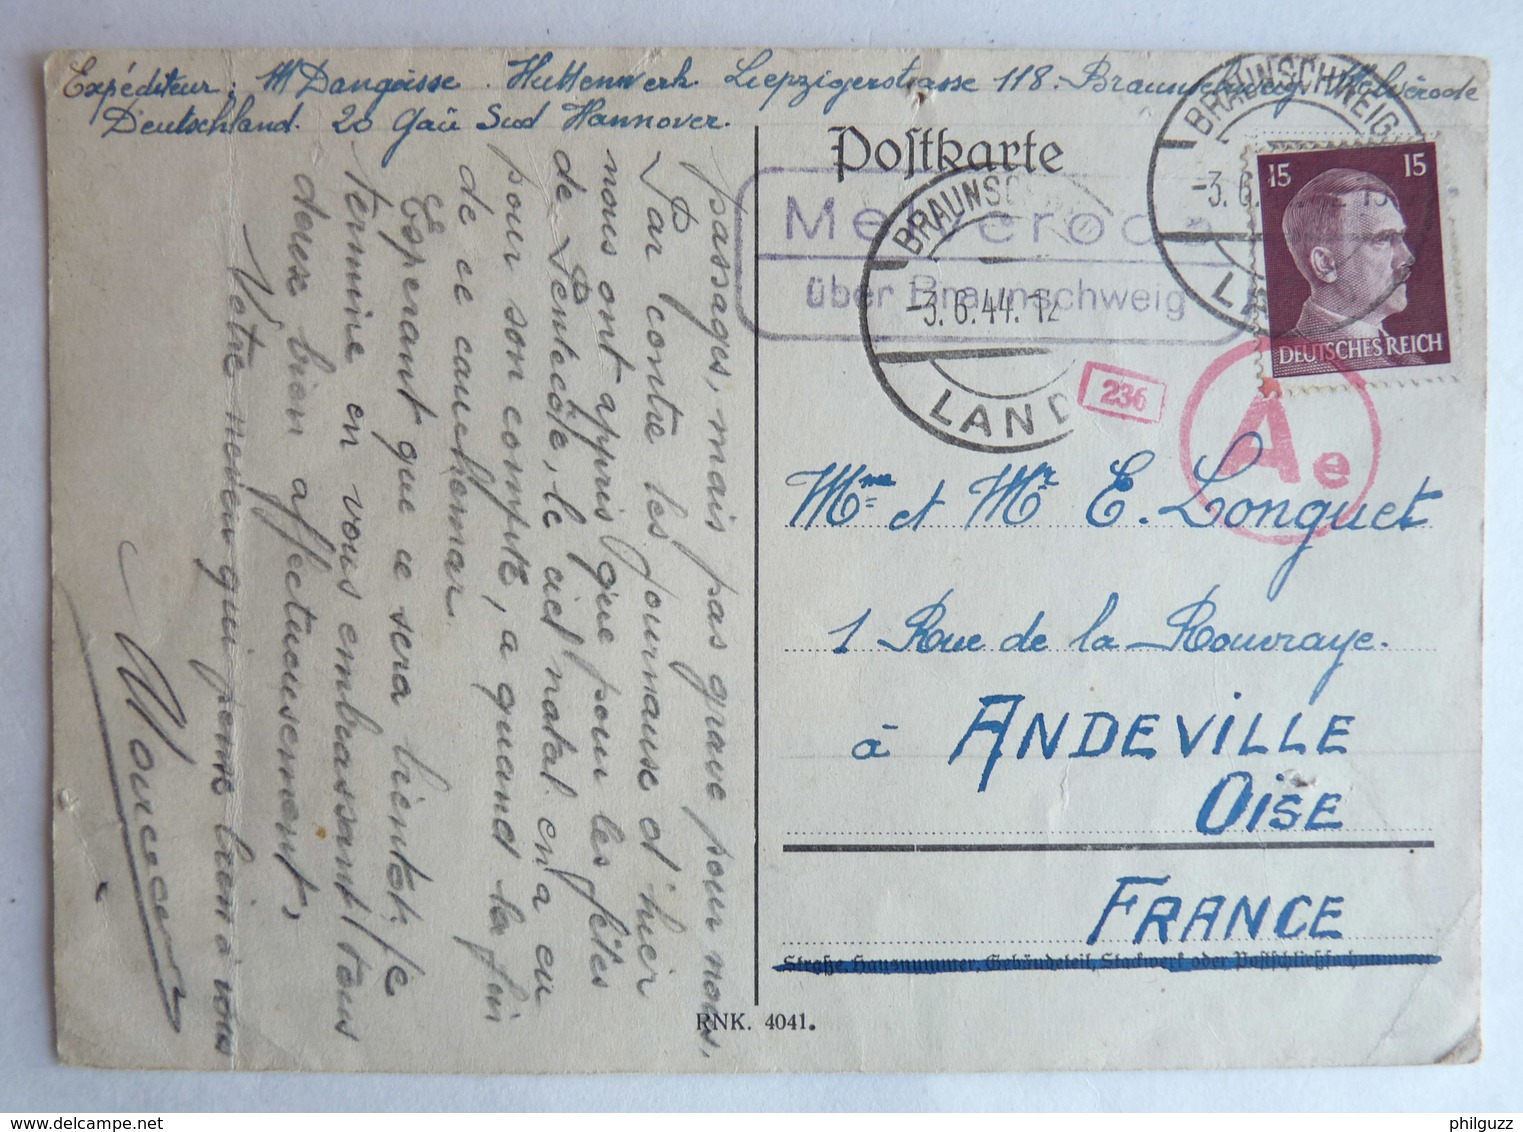 Expéditeur: M Dangoisse. Huttenwerk. Liepzigerstrasse 118. Braunschweig Melverode
Deutschland. 20 Gaü Sud Hannover.
Postkarte
Melverode
über Braunschweig
BRAUNSCHWEIG
-3.6.44.12
LAND
BRAUNSCHWEIG
-3.6.
15 15
DEUTSCHES REICH
236
Ae
Mme et Mr E. Longuet
1 Rue de la Rouvraye.
à ANDEVILLE
OISE
FRANCE
Straße, Hausnummer, Gebäudeteil, Stockwerk oder Postschließfachnummer
RNK. 4041.
passages, mais pas grave pour nous.
Par contre les journause d'hier
nous ont appris que pour les fêtes
de Pentecôte, le ciel natal en a eu
pour son compte, a quand la fin
de ce cauchemar.
Esperant que ce sera bientot je
termine en vous embrassant tous
douse bien affectueusement,
Votre neveu qui pense bien à vous
philguzz